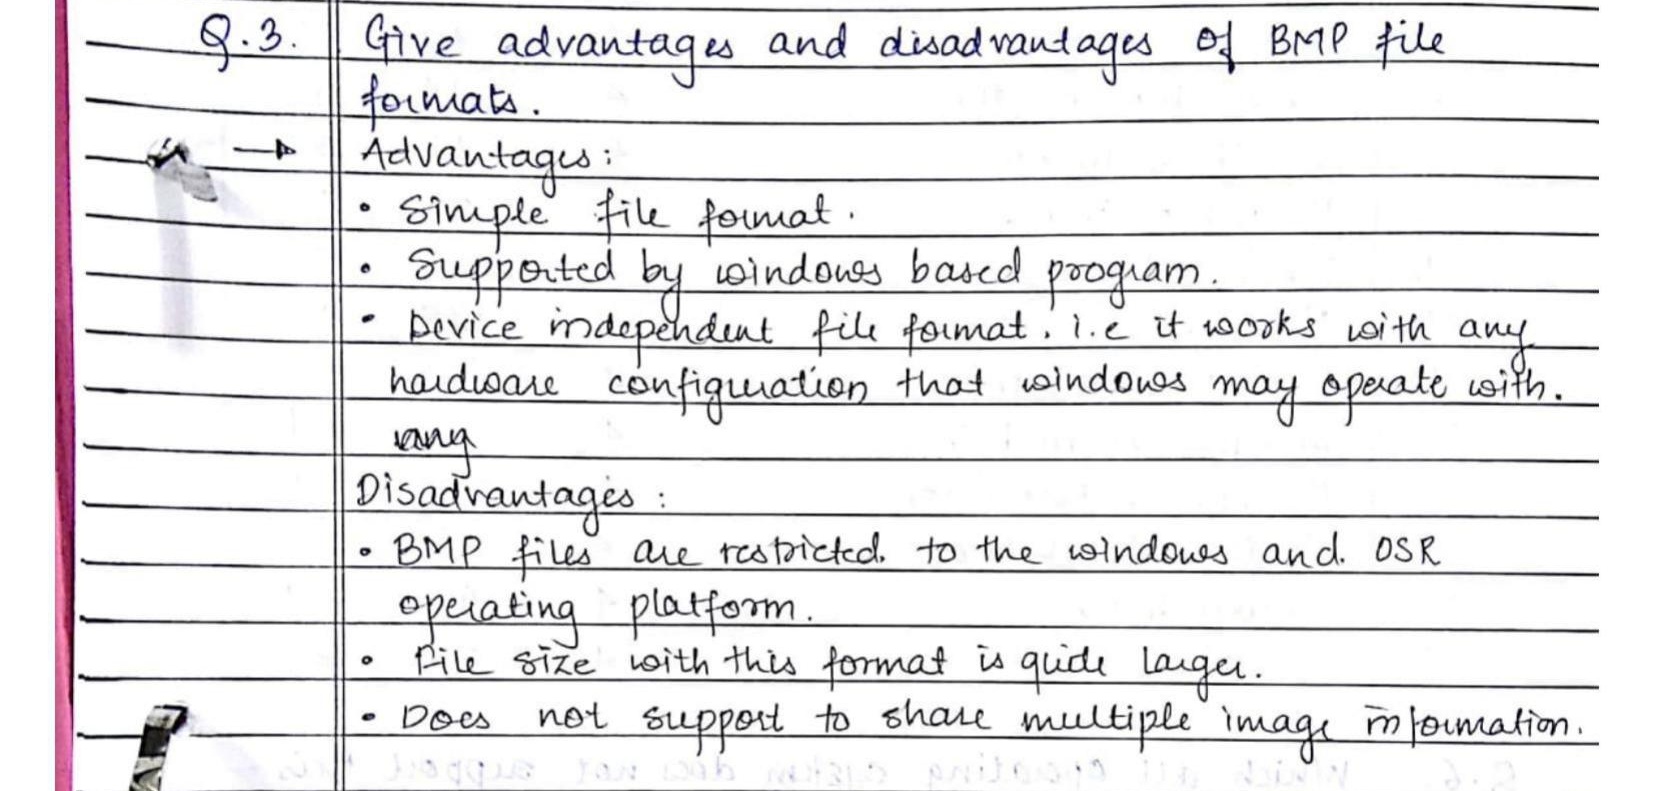 Q.3. Give advantages and disadvantages of BMP file
formats.
→ Advantages:
• Simple file format.
• Supported by windows based program.
• Device independent file format. i.e it works with any
hardware configuration that windows may operate with.
Disadvantages:
• BMP files are restricted to the windows and OSR
operating platform.
• File size with this format is quide larger.
• Does not support to share multiple image information.